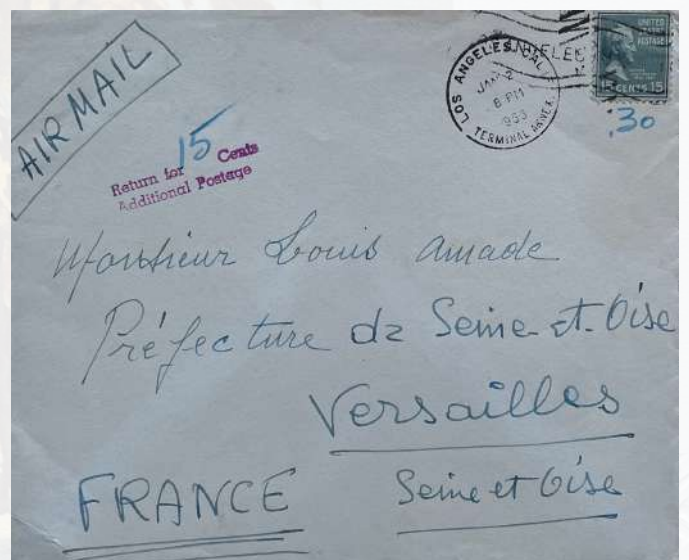 AIR MAIL
Return for 15 Cents
Additional Postage
LOS ANGELES, CAL.
JAN 2
8 PM
1953
TERMINAL ANNEX
UNITED
STATES
POSTAGE
15 CENTS 15
.30
Monsieur Louis Amade
Préfecture de Seine-et-Oise
Versailles
Seine et Oise
FRANCE